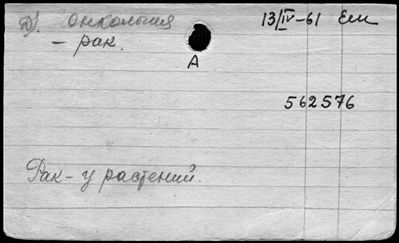 Д). Онкология 13/IV-61 Ели
- рак.
А
562576
Рак - у растений.